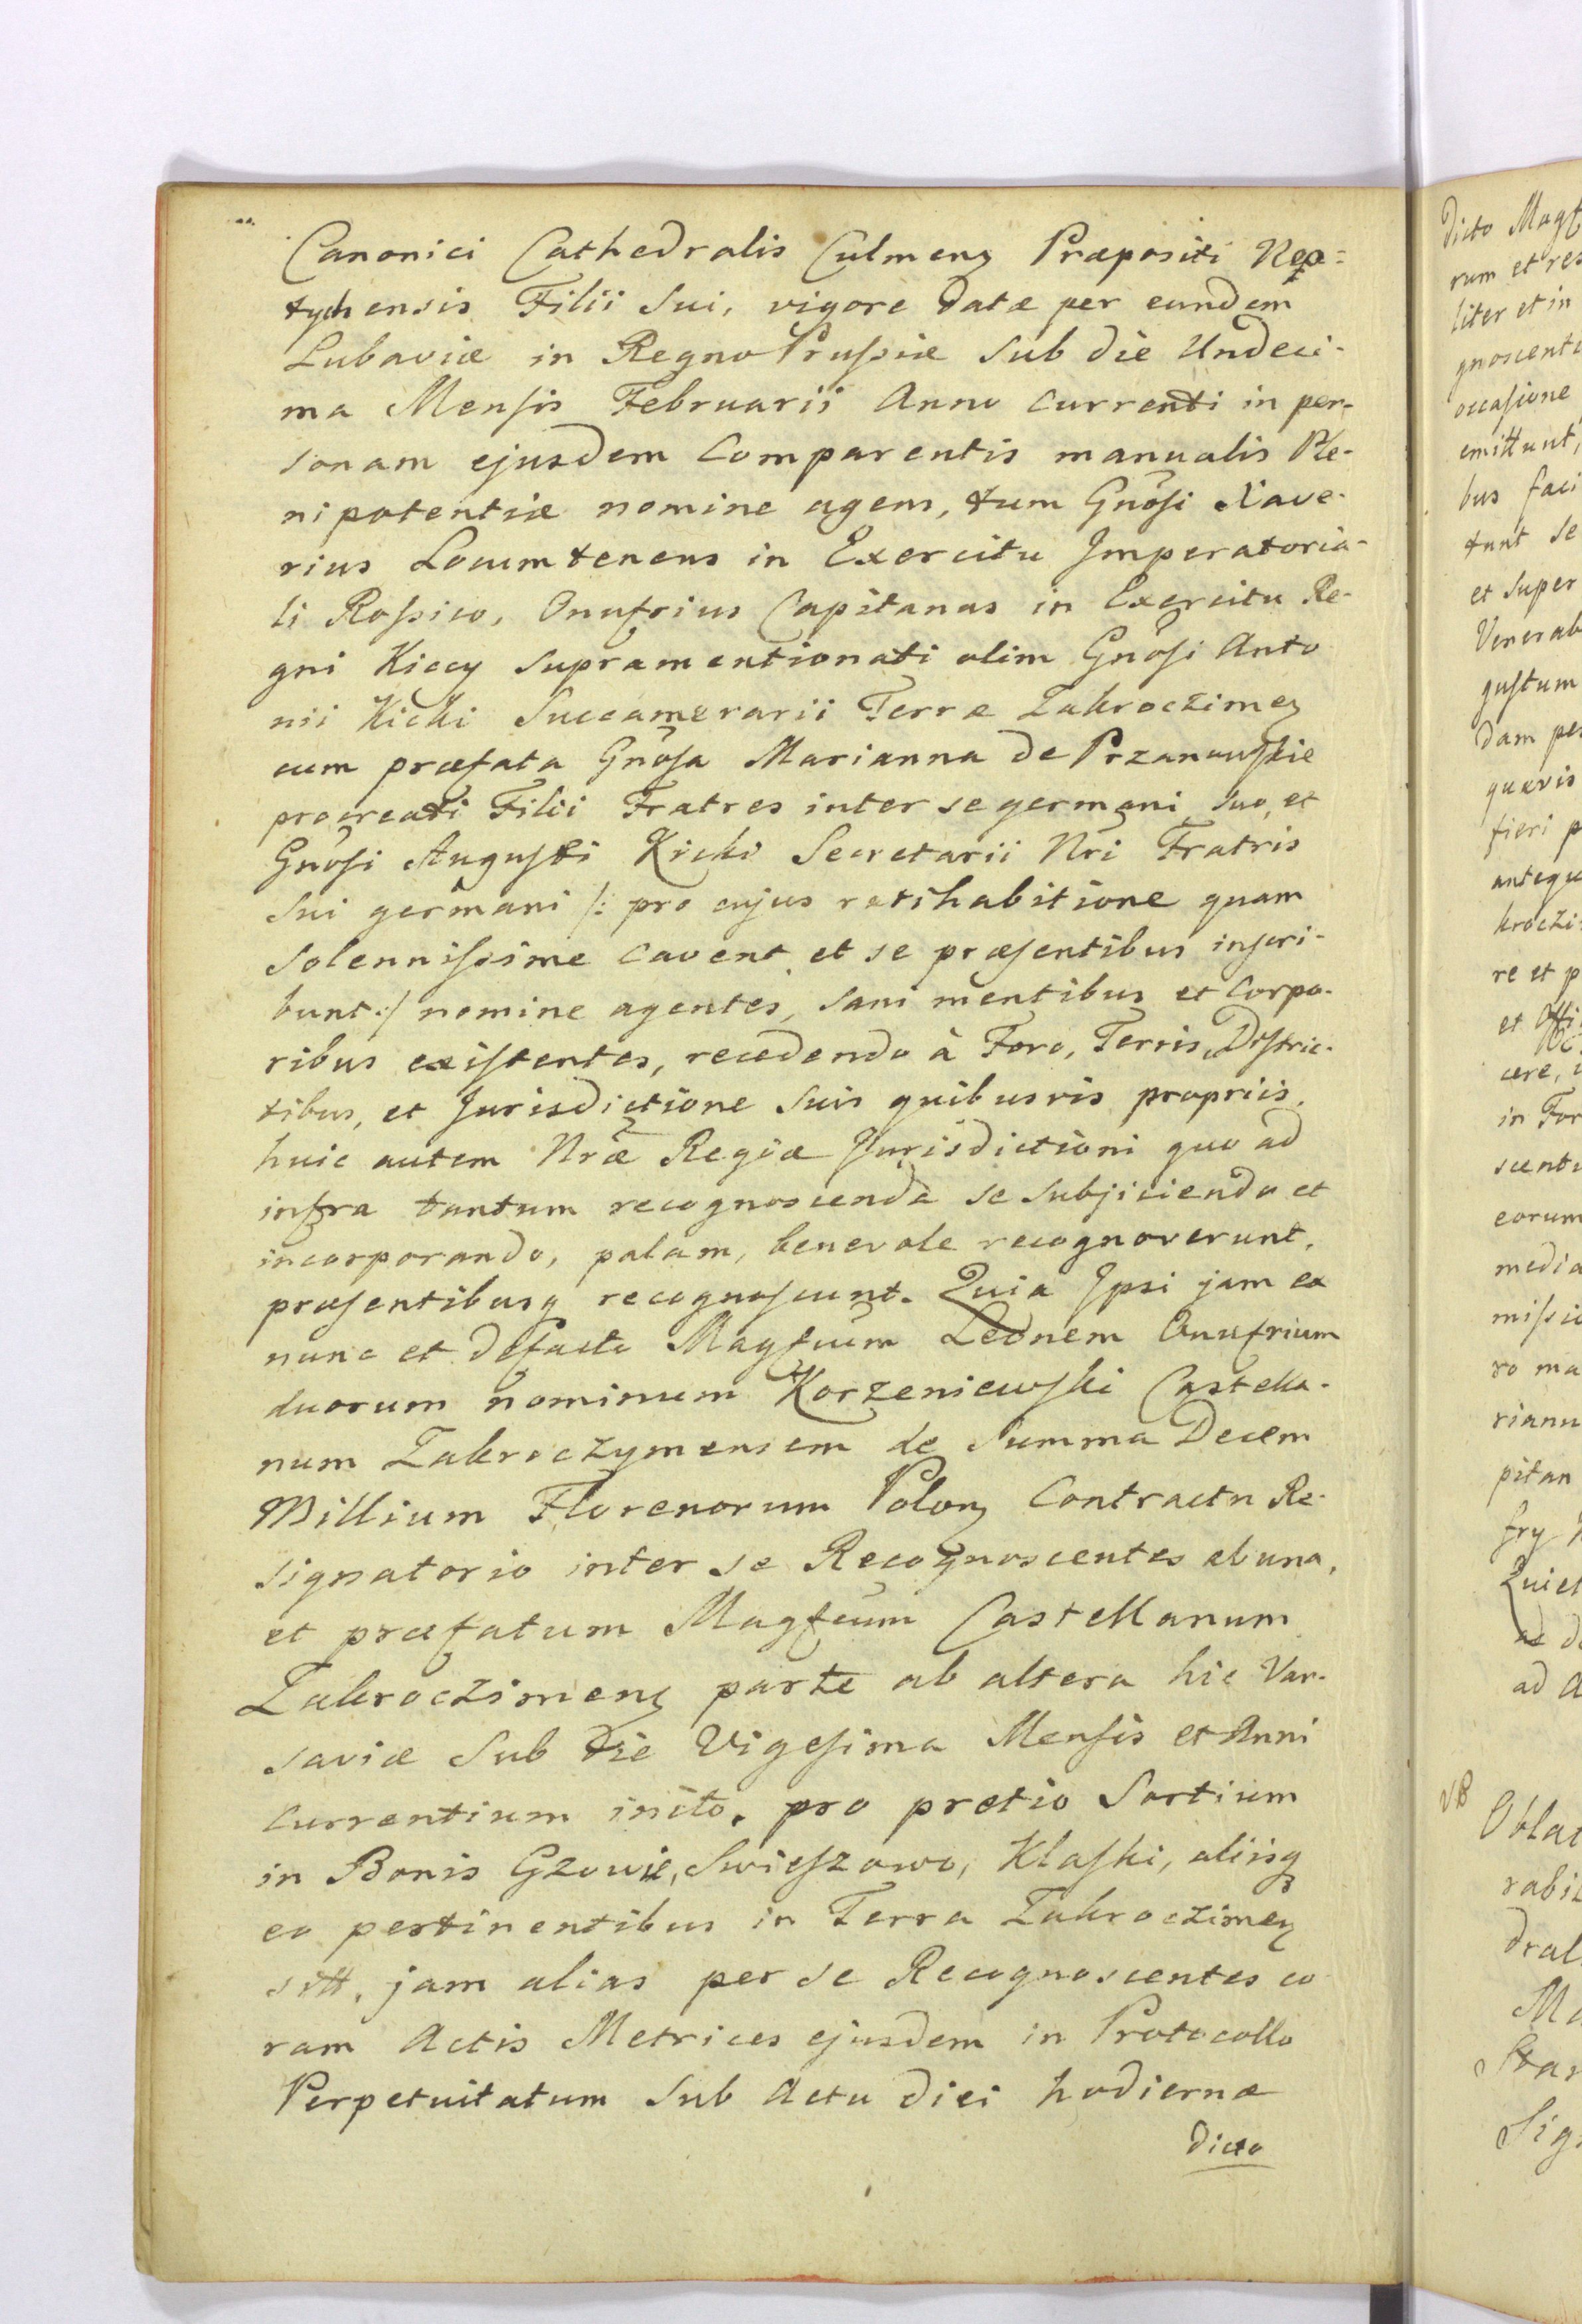 Canonici Cathedralis Culmens Præpositi Nep=
tychensis Filii Sui, vigore datæ per eundem
Lubaviæ in Regno Prussiæ sub die Undeci-
ma Mensis Februarii Anno currenti in per-
sonam ejusdem Comparentis manualis Ple-
nipotentiæ nomine agens, tum Gnosi Xave-
rius Locumtenens in Exercitu Imperatoria-
li Rossico, Onufrius Capitanas in Exercitu Re-
gni Kiccy supramentionati olim Gnosi Anto
nii Kicki Succamerarii Terræ Zakroczimen
cum præfata Gnosa Marianna de Przanowskie
procreati Filii Fratres inter se germani suo, et
Gnosi Augusti Kicki Secretarii Nri Fratris
Sui germani /: pro cujus ratihabitione quam
solennissime cavent et se præsentibus inscri-
bunt :/ nomine agentes, sani mentibus et corpo-
ribus existentes, recedendo à Foro, Terris, Distric-
tibus, et Jurisdictione suis quibusvis propriis,
huic autem Nræ Regiæ Jurisdictioni quo ad
infra tantum recognoscenda se subjiciendo et
incorporando, palam, benevole recognoverunt,
præsentibusq recognoscunt. Quia Ipsi jam ex
nunc et defacto Magfcum Leonem Onufrium
duorum nominum Korzeniewski Castella-
num Zakroczymensem de Summa Decem
Millium Florenorum Polon Contractu Re-
signatorio inter se Recognoscentes ab una,
et præfatum Magfcum Castellanum
Zakroczimens parte ab altera hic Var-
saviæ sub die Vigesima Mensis et Anni
currentium inito, pro pretio Sortium
in Bonis Gzowie, Swieszowo, Klaski, aliisq
eo pertinentibus in Terra Zakroczimen
sitt. jam alias per se Recognoscentes co
ram Actis Metrices ejusdem in Protocollo
Perpetuitatum sub Actu diei hodiernæ
dicto
dicto Magf
rum et res
liter et in
gnoscente
occasione
emittunt,
bus faci
tunt se
et super
Venerab
gustum
dam per
quævis
fieri p
antequ
kroczi
re et p
et Offi
cere,
in For
scenti
eorum
media
missio
ro ma
rianu
pitan
fry
Quiet
ad
ad A
Oblat
rabil
dral
Ma
Star
Sig